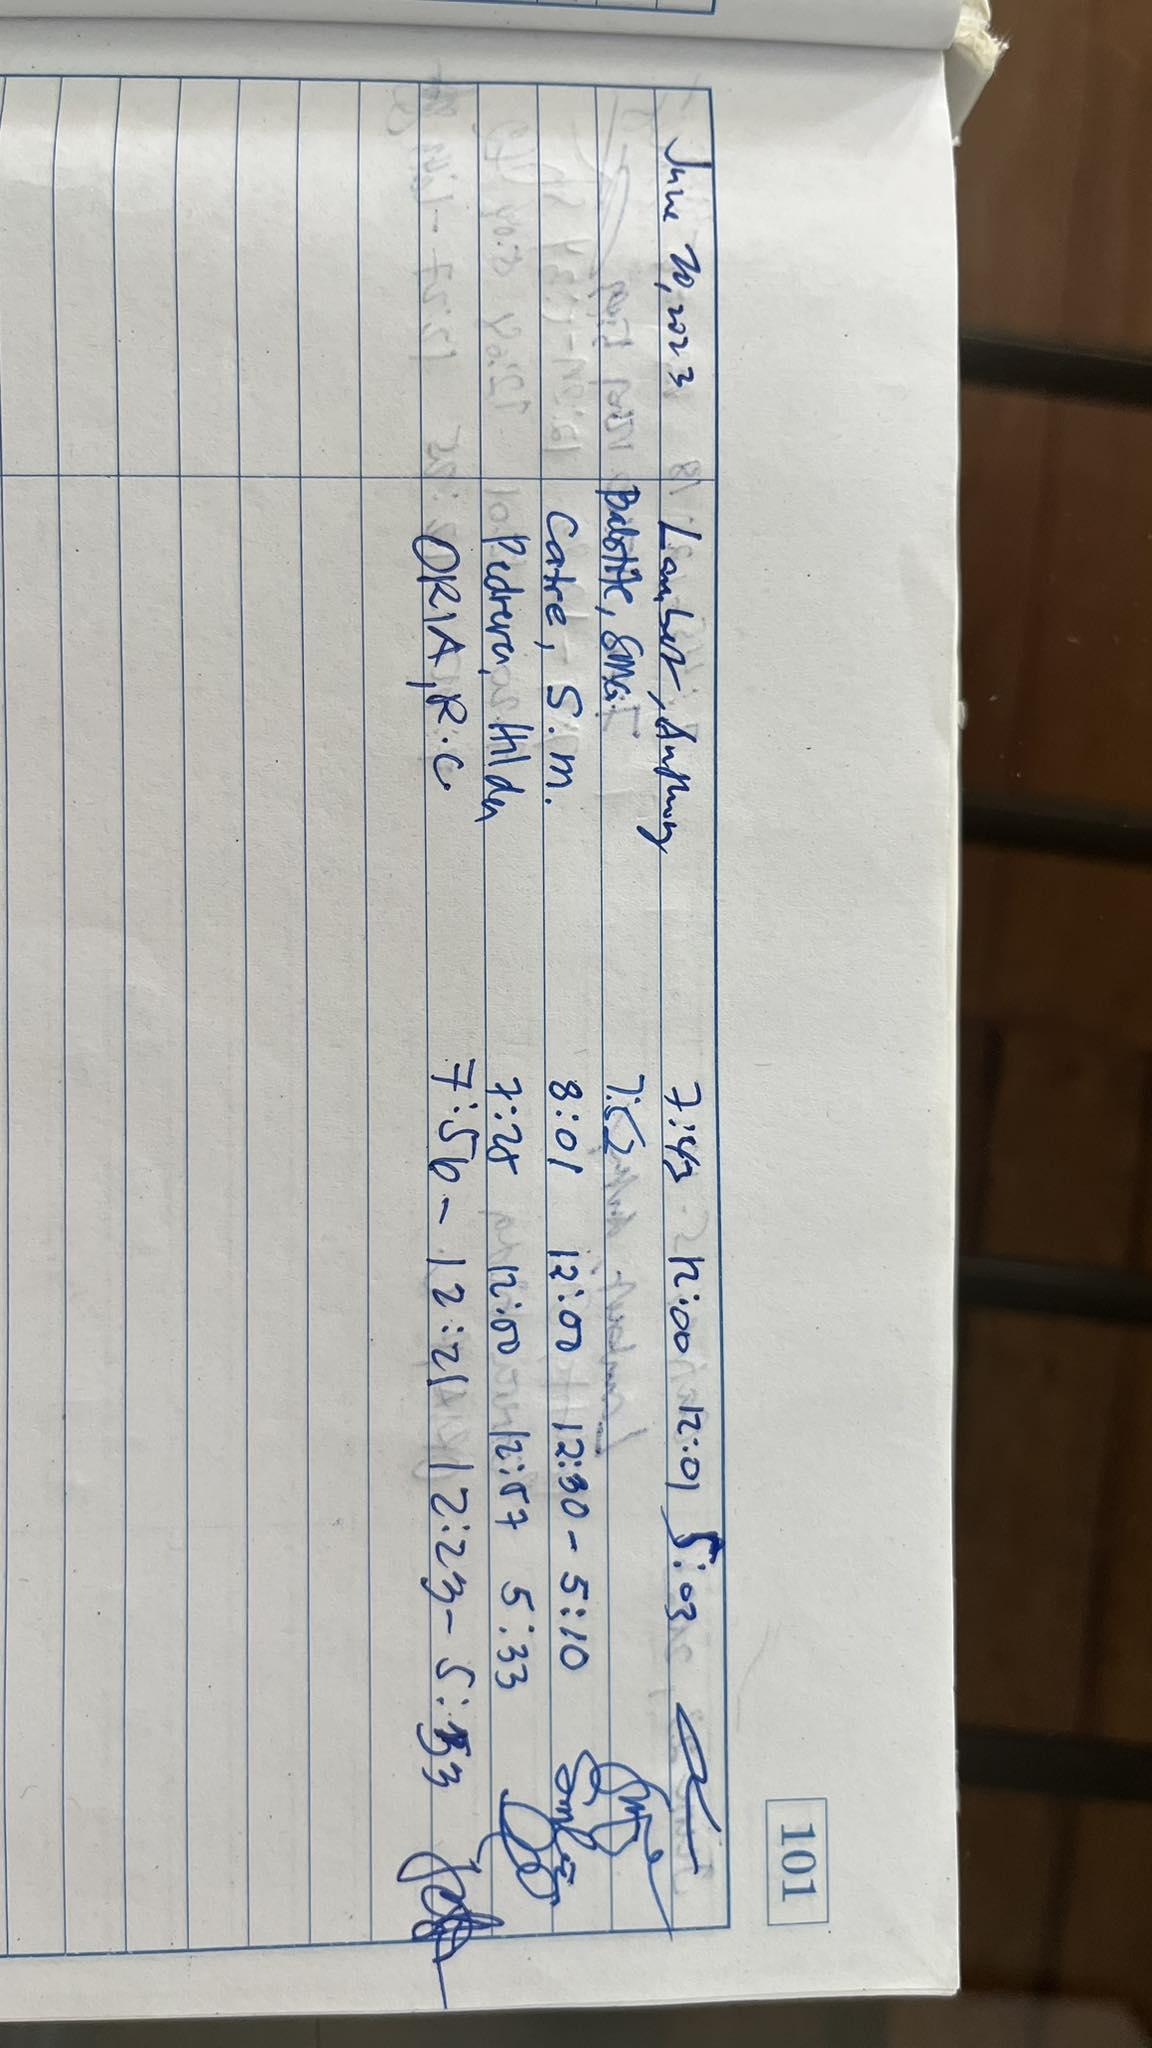 101
June 20, 2023 Lambet, Anthony 7:43 12:00 12:01 5:03
7:52
Catre, S.M. 8:01 12:00 12:30 - 5:10
Pedrera, Hilda 7:28 12:00 12:57 5:33
ORIA, R.C. 7:56 - 12:21 12:23 - 5:33